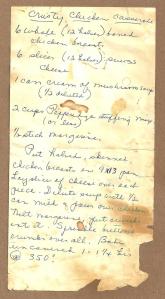 Crusty Chicken Casserole
6 whole (12 halves) boned
chicken breasts
6 slices (12 halves) swiss
cheese
1 can cream of mushroom soup
(½ diluted)
2 cups Pepperidge stuffing mix
(or less)
½ stick margarine.
Put halved, skinned
chicken breasts in 9x13 pan
Lay slice of cheese over each
piece. Dilute soup with ½
can milk & pour over chicken
Melt margarine, put crumbs
into it. Sprinkle buttered
crumbs over all. Bake
uncovered 1 - 1¼ hrs
@ 350°